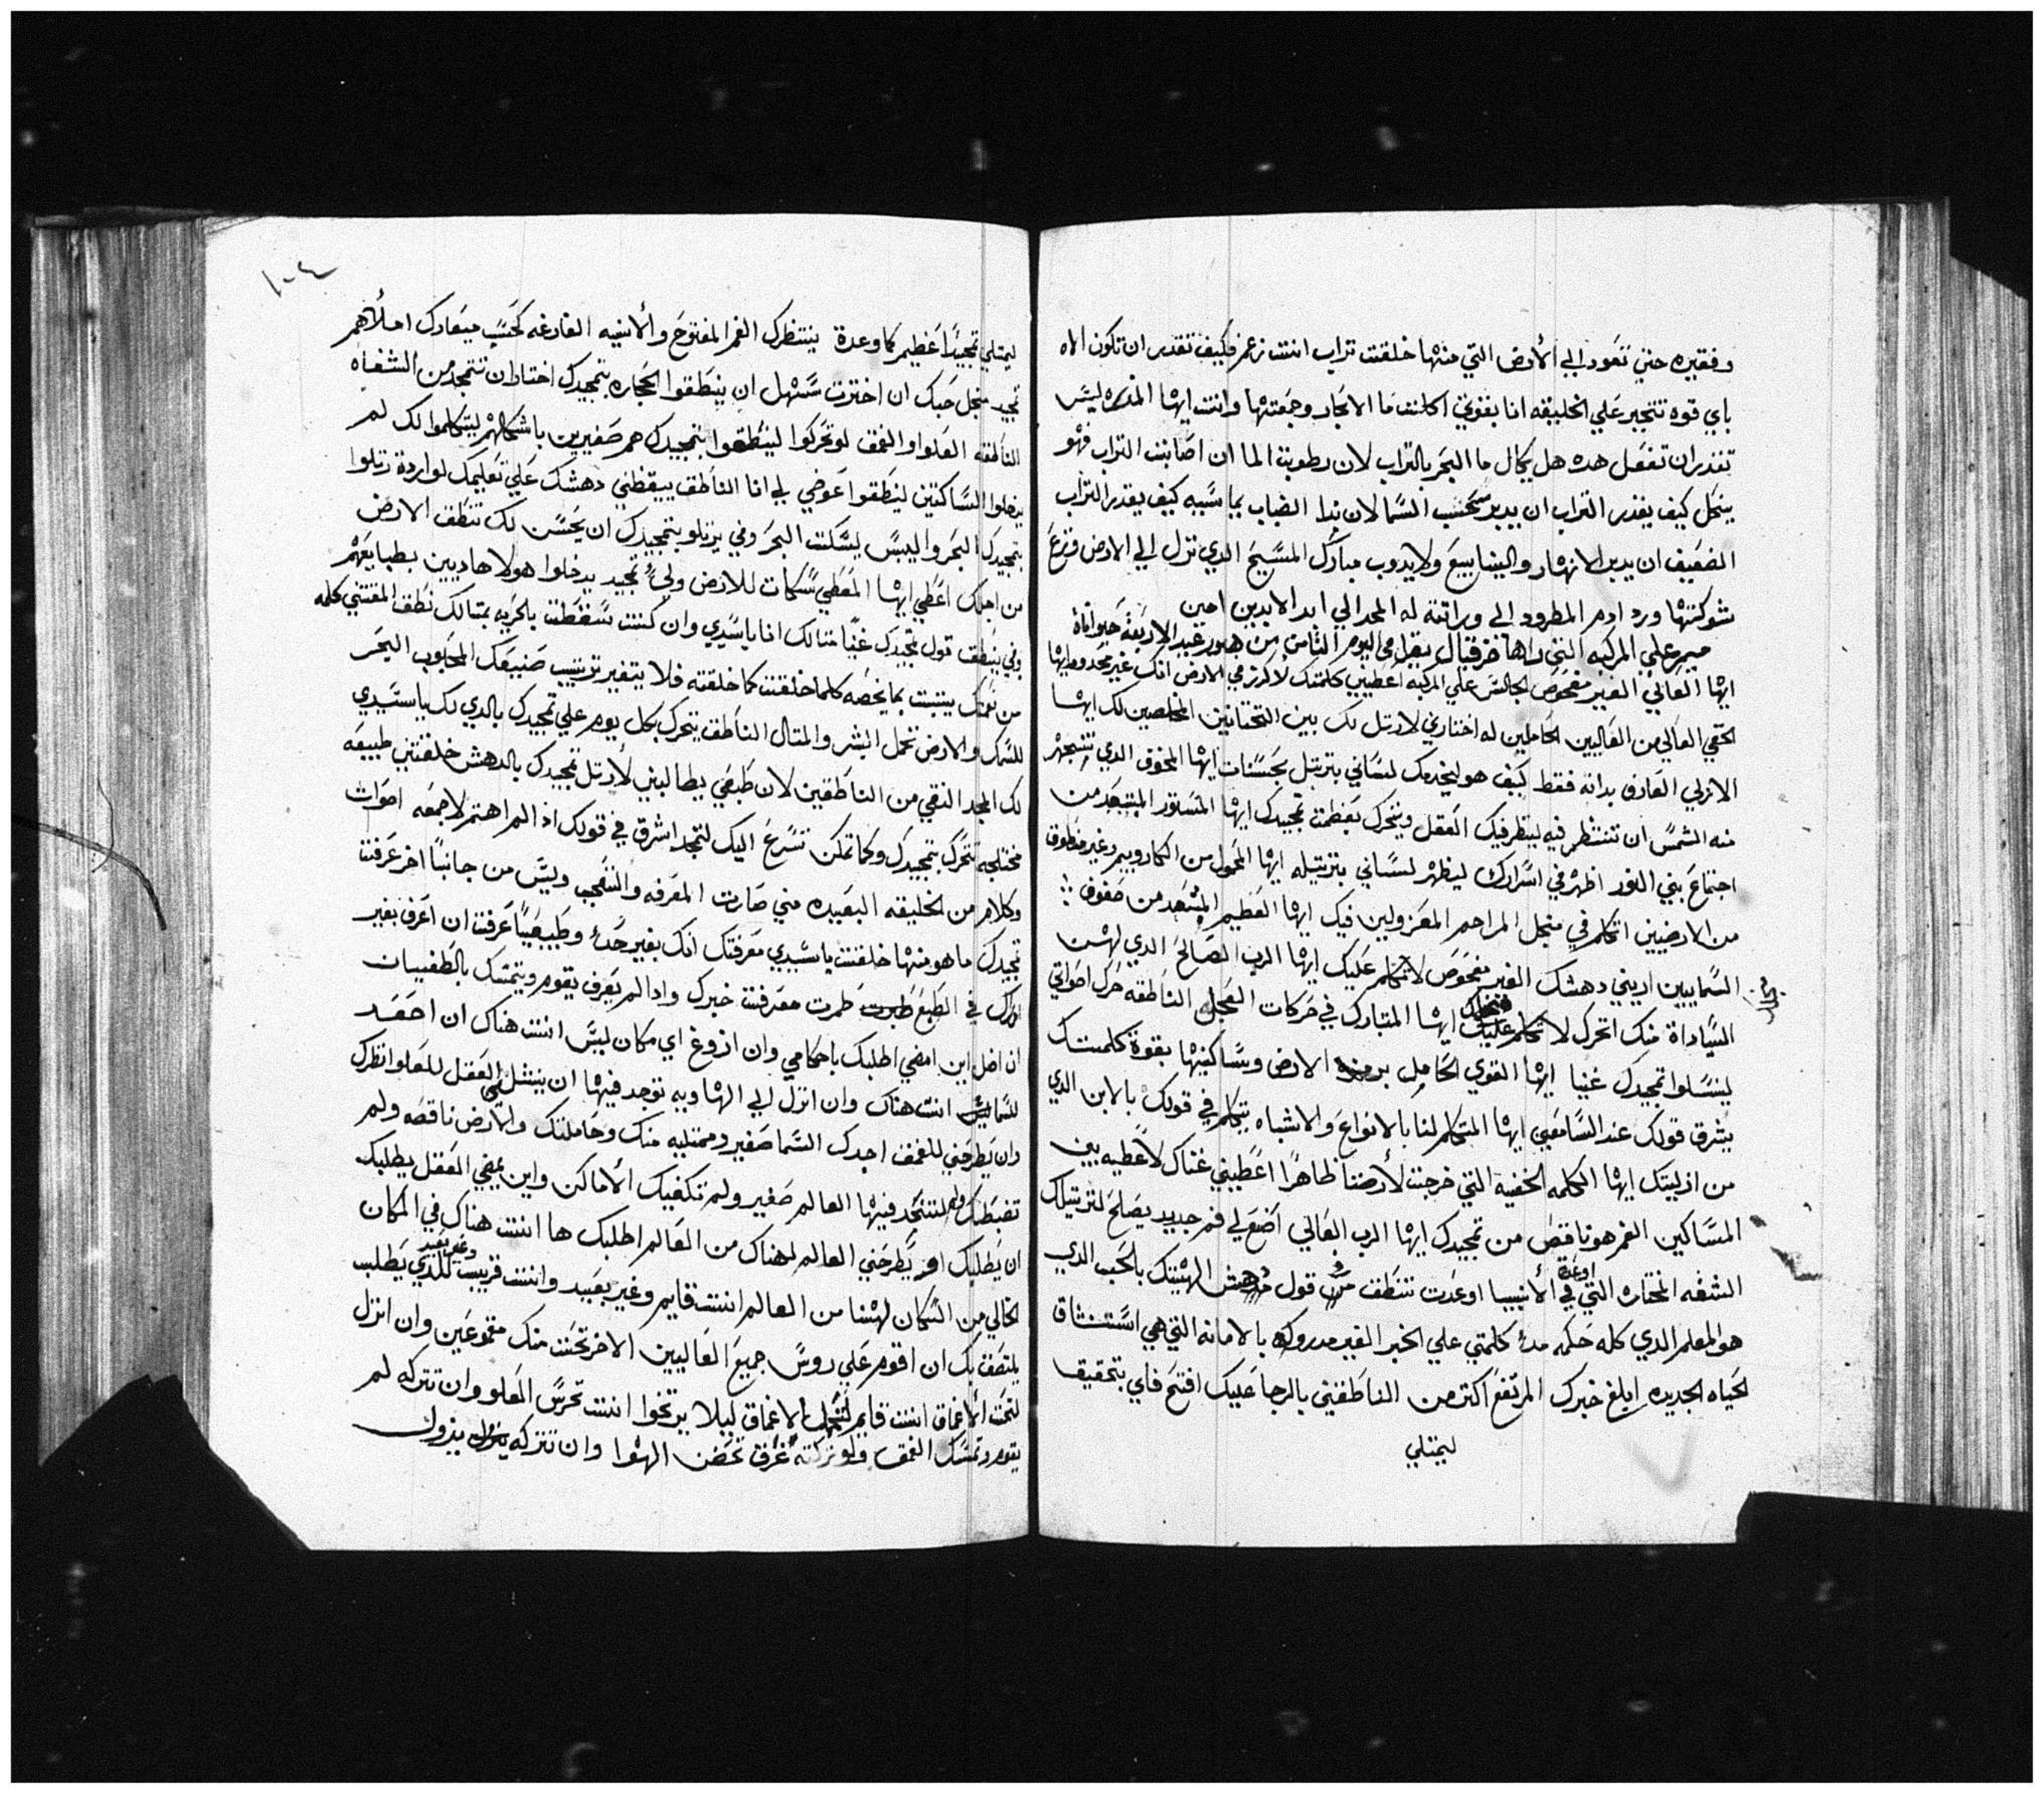 وفقيره حتي تعود الي الأرض التي منها خلقت تراب انت زعم وكيف تقدر ان تكون الاه
باي قوه تتجبر علي الخليقه انا بقوتي اكانت ما الابحار وجمعتها وانت ايها المدره ليس
تقدر ان تفعل هده هل يكال ما البحر بالتراب لان رطوبة الما ان اصابت التراب فهو
ينحل كيف يقدر التراب ان يدبر سحب السما لان ندا الضباب بما سببه كيف يقدر التراب
الضعيف ان يدبر الانهار والينابيع ولا يدوب مبارك المسيح الدي نزل الي الارض ونزع
شوكتها ورد ادم المطرود الي وراتته له المجد الي ابد الابدين امين
ميمر علي المركبه التي راها حزقيال يقرا في اليوم الثامن من هتور عيد الاربعة حيوانات
ايها العالي الغير مفحوص الجالس علي المركبه اعطيني كلمتك لاكرز في الارض انك غير محدود ايها
الحقي العالي من العاليين الحاملين له اختارني لارتل لك بين التحتانيين المخلصين لك ايها
الازلي العارف بداته فقط كيف هو ليخدمك لساني بترتيل بحسنات ايها المخوف الدي تنبهر
منه الشمس ان تنتظر فيه لينظر فيك العقل ويتحرك بعظمت تمجيدك ايها المستور المبتعد من
اجتماع بني النور اظهر في اسرارك لينظر لساني بترتيله ايها المحمول من الكاروبيم وغير منطوق
من الارضيين اتكلم في منجل المراحم المعزولين فيك ايها العظيم المبتعد من صفوف
السماييين اريني دهشك الغير مفحوص لاتكلم عليك ايها الرب الصالح الدي لهن
الساداة منك اتحرك لاتكلم عليك ايها المتبارك في حركات العجل الناطقه حرك اصواتي
لينسلوا تمجيدك غنيا ايها القوي الحامل برمزه الارض وساكنيها بقوة كلمتك
يشرق قولك عند السامعين ايها المتكلم لنا بالانواع والاشباه يتكلم في قولك بالابن الدي
من ازليتك ايها الكلمه الخفيه التي خرجت لأرضنا ظاهرًا اعطيني غناك لأعطيه بين
المساكين الفم هو ناقص من تمجيدك ايها الرب العالي اضع لي فم جديد يصلح لترتيلك
الشفه المختاره التي في الأنبيا اوعدت تنطق من قول مدهش الهيتك بالحب الدي
هو المعلم الدي كله حكمه مد كلمتي علي الخبر الغير مدروك بالامانه التي هي استنشاق
الحياه الجديده ابلغ خبرك المرتفع اكتر من الناطقين بالرجا عليك افتح فاي بتحقيق
ليمتلي
١٠٤
ليمتلي تمجيدًا عظيم كما وعدة ينتظرك الفم المفتوح والأنيه الفارغه كحسب ميعادك املأهم
تمجيد منجل حبك ان اخترت سهل ان ينطقوا الحجاره بتمجيدك اختار ان تتمجد من الشفاه
الناطقه العلوا والعمق لو تحركوا لينطقوا بتمجيدك هم صغيرين باشكالهم ليتكلموا لك لم
يدخلوا الساكتين لينطقوا عوضي لي انا الناطق يبقظني دهشك علي تعليمك لو اردة رتلوا
بتمجيدك البحر واليبس ليسكت البحر وفي يرتلو بتمجيدك ان يحسن لك تنطق الارض
من اجلك اعطي ايها المعطي سكات للارض ولي تمجيد يدخلوا هولا هاديين بطبايعهم
وفي ينطق قول تمجيدك غنيًا متالك انا ياسيدي وان كنت سقطت بالحريه بمتالك نطق المقتني كلمه
من نعمتك يتبت بما يخصه كلما خلقت كما خلقته فلا يتغير ترتيب صنيعك المحبوب البحر
للسمك والارض تحمل البشر والمتال الناطق يتحرك بكل يوم علي تمجيدك بالدي لك ياسيدي
لك المجد النقي من الناطقين لان طبعي يطالبني لأرتل تمجيدك بالدهش خلقتني طبيعه
مختلجه تتحرك بتمجيدك وكما تمكن تسرع اليك لتمجد اشرق في قولك اذ الم اهتم لاجمعه اصوات
وكلام من الخليقه البعيده مني صارت المعرفه والتعجب وليس من جانبًا اخر عرفت
تمجيدك ما هو منها خلقت ياسيدي معرفتك انك بغير حد وطبيعيًا عرفت ان اعرف بغير
ادرك في الطبع طمرت معرفت خبرك وادا لم يعرف يقوم ويتمسك بالطغييان
ان اضل اين امضي اطلبك باحكامي وان ازوغ اي مكان ليس انت هناك ان اصعد
للسما انت هناك وان انزل الي الهاويه توجد فيها ان ينشل العقل للعلو انظرك
وان يطرحني للعمق اجدك السما صغير وممتليه منك وحاملتك والارض ناقصه ولم
تضبطك ولم لتتجد فيها العالم صغير ولم تكفيك الأماكن واين يمضي العقل يطلبك
ان يطلبك او يطرحني العالم لهناك من العالم اطلبك ها انت هناك في المكان
الخالي من السكان لهنا من العالم انت قايم وغير بعيد وانت قريب للدي يطلب
يلتصق بك ان اقوم علي روس جميع العاليين الاخر تحت منك مقموعين وان انزل
لتحت الأعماق انت قايم لتحمل الاعماق ليلا يرتخوا انت تحرس العلو وان تتركه لم
يقوم وتمسك العمق ولو تركته غرق تحضن الهوا وان تتركه يزول